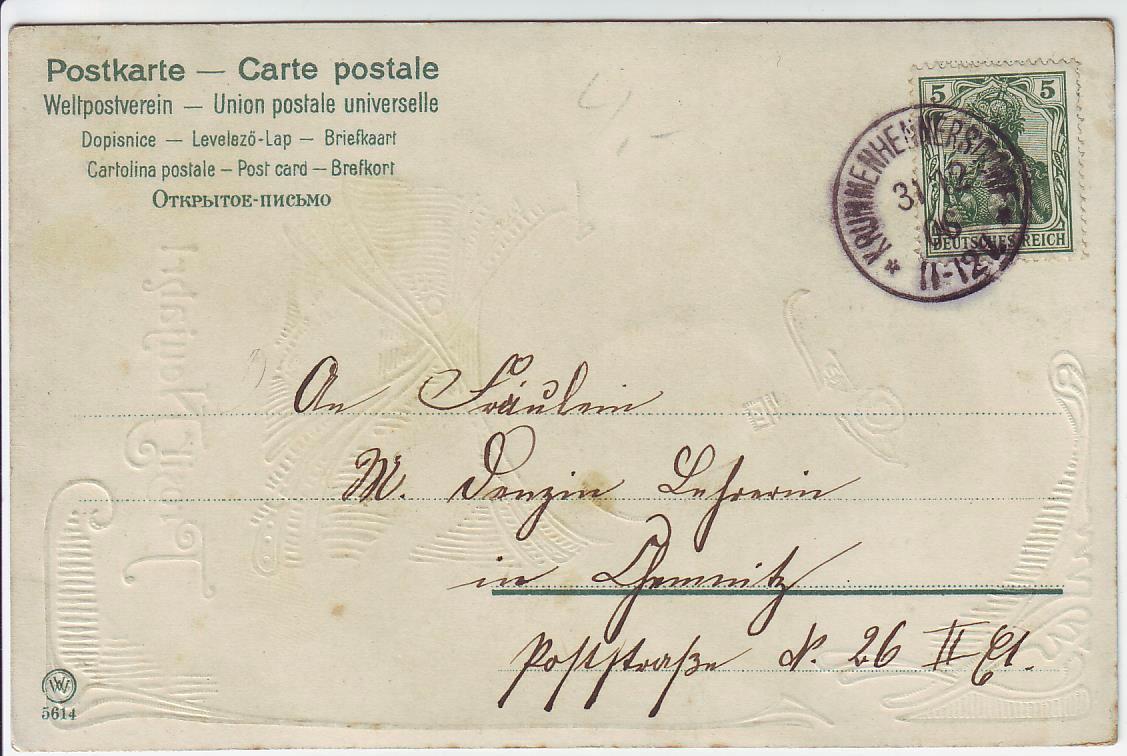 Postkarte — Carte postale
Weltpostverein — Union postale universelle
Dopisnice — Levelező-Lap — Briefkaart
Cartolina postale — Post card — Brefkort
Открытое-письмо
5 5
DEUTSCHES REICH
* KRUMMENHENNERSDORF *
31 12
06
11-12V
An Fräulein
M. Denzin Lehrerin
in Chemnitz
Poststraße N. 26 II Et.
W
5614